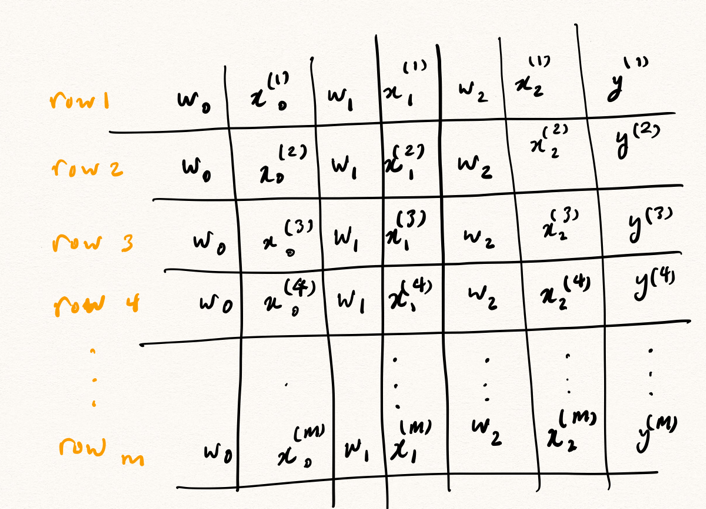 row 1 w₀ x₀⁽¹⁾ w₁ x₁⁽¹⁾ w₂ x₂⁽¹⁾ y⁽¹⁾
row 2 w₀ x₀⁽²⁾ w₁ x₁⁽²⁾ w₂ x₂⁽²⁾ y⁽²⁾
row 3 w₀ x₀⁽³⁾ w₁ x₁⁽³⁾ w₂ x₂⁽³⁾ y⁽³⁾
row 4 w₀ x₀⁽⁴⁾ w₁ x₁⁽⁴⁾ w₂ x₂⁽⁴⁾ y⁽⁴⁾
row m w₀ x₀⁽ᴹ⁾ w₁ x₁⁽ᴹ⁾ w₂ x₂⁽ᴹ⁾ y⁽ᴹ⁾